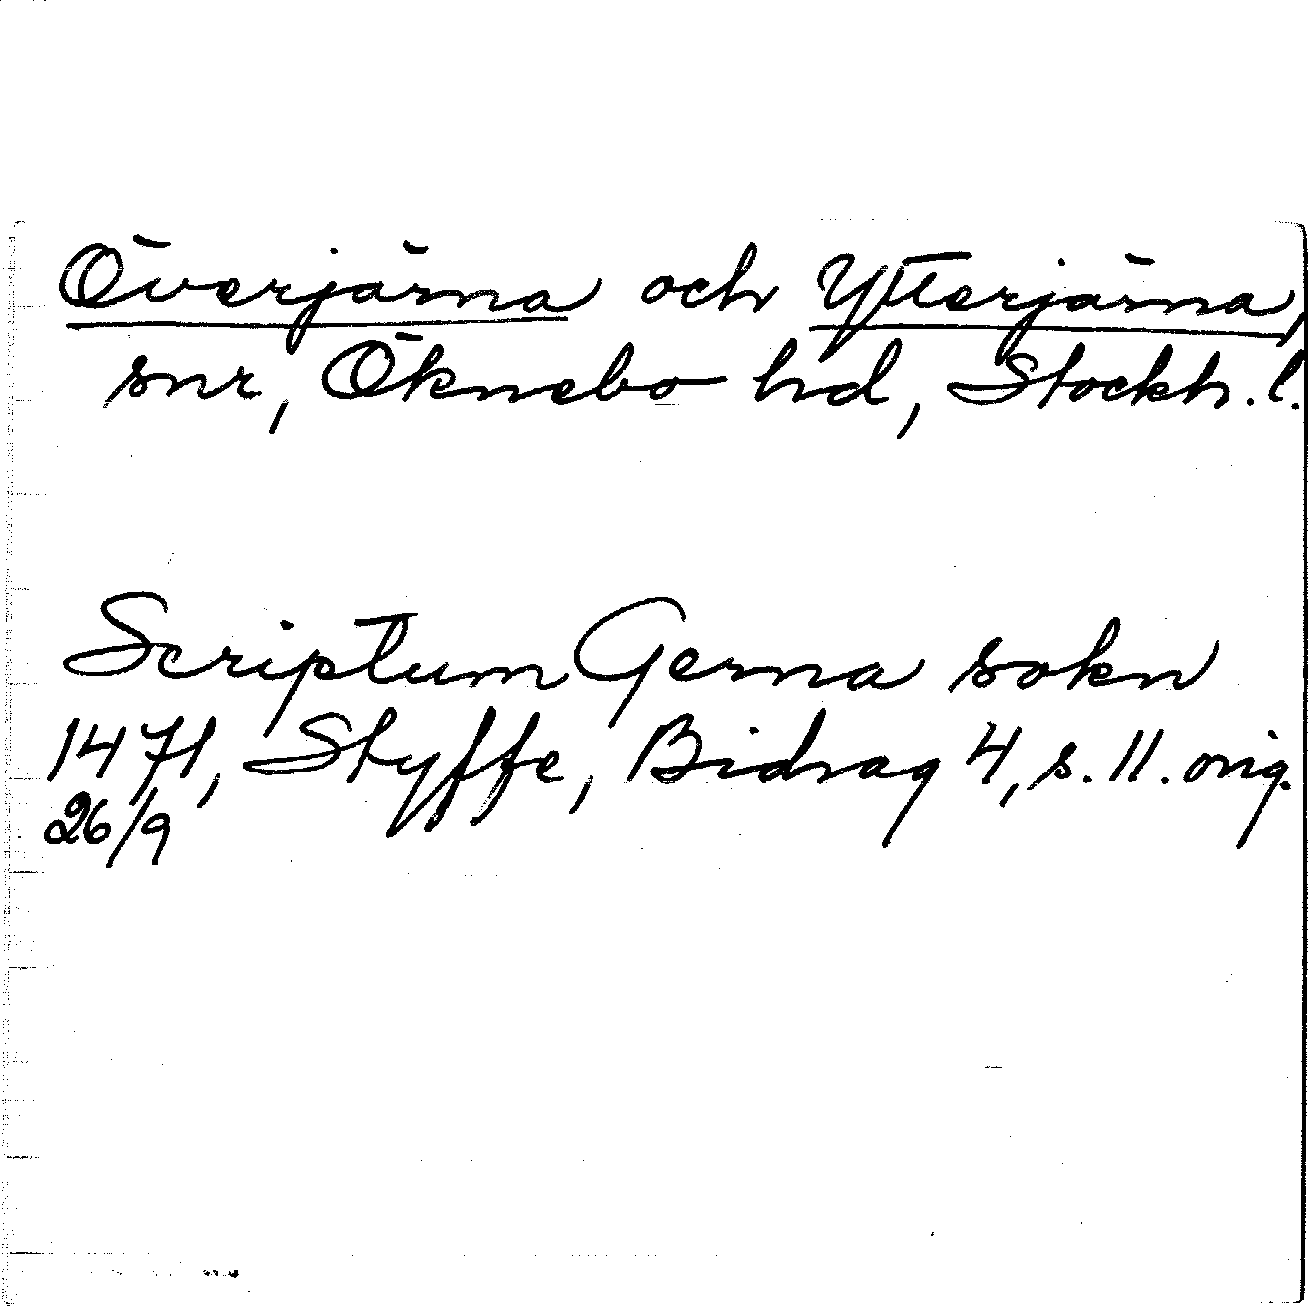 Överjärna och Ytterjärna,
snr, Öknebo hd, Stockh. l.
Scriptum Gerna sokn
1471, Styffe, Bidrag 4, s. 11. orig.
26/9